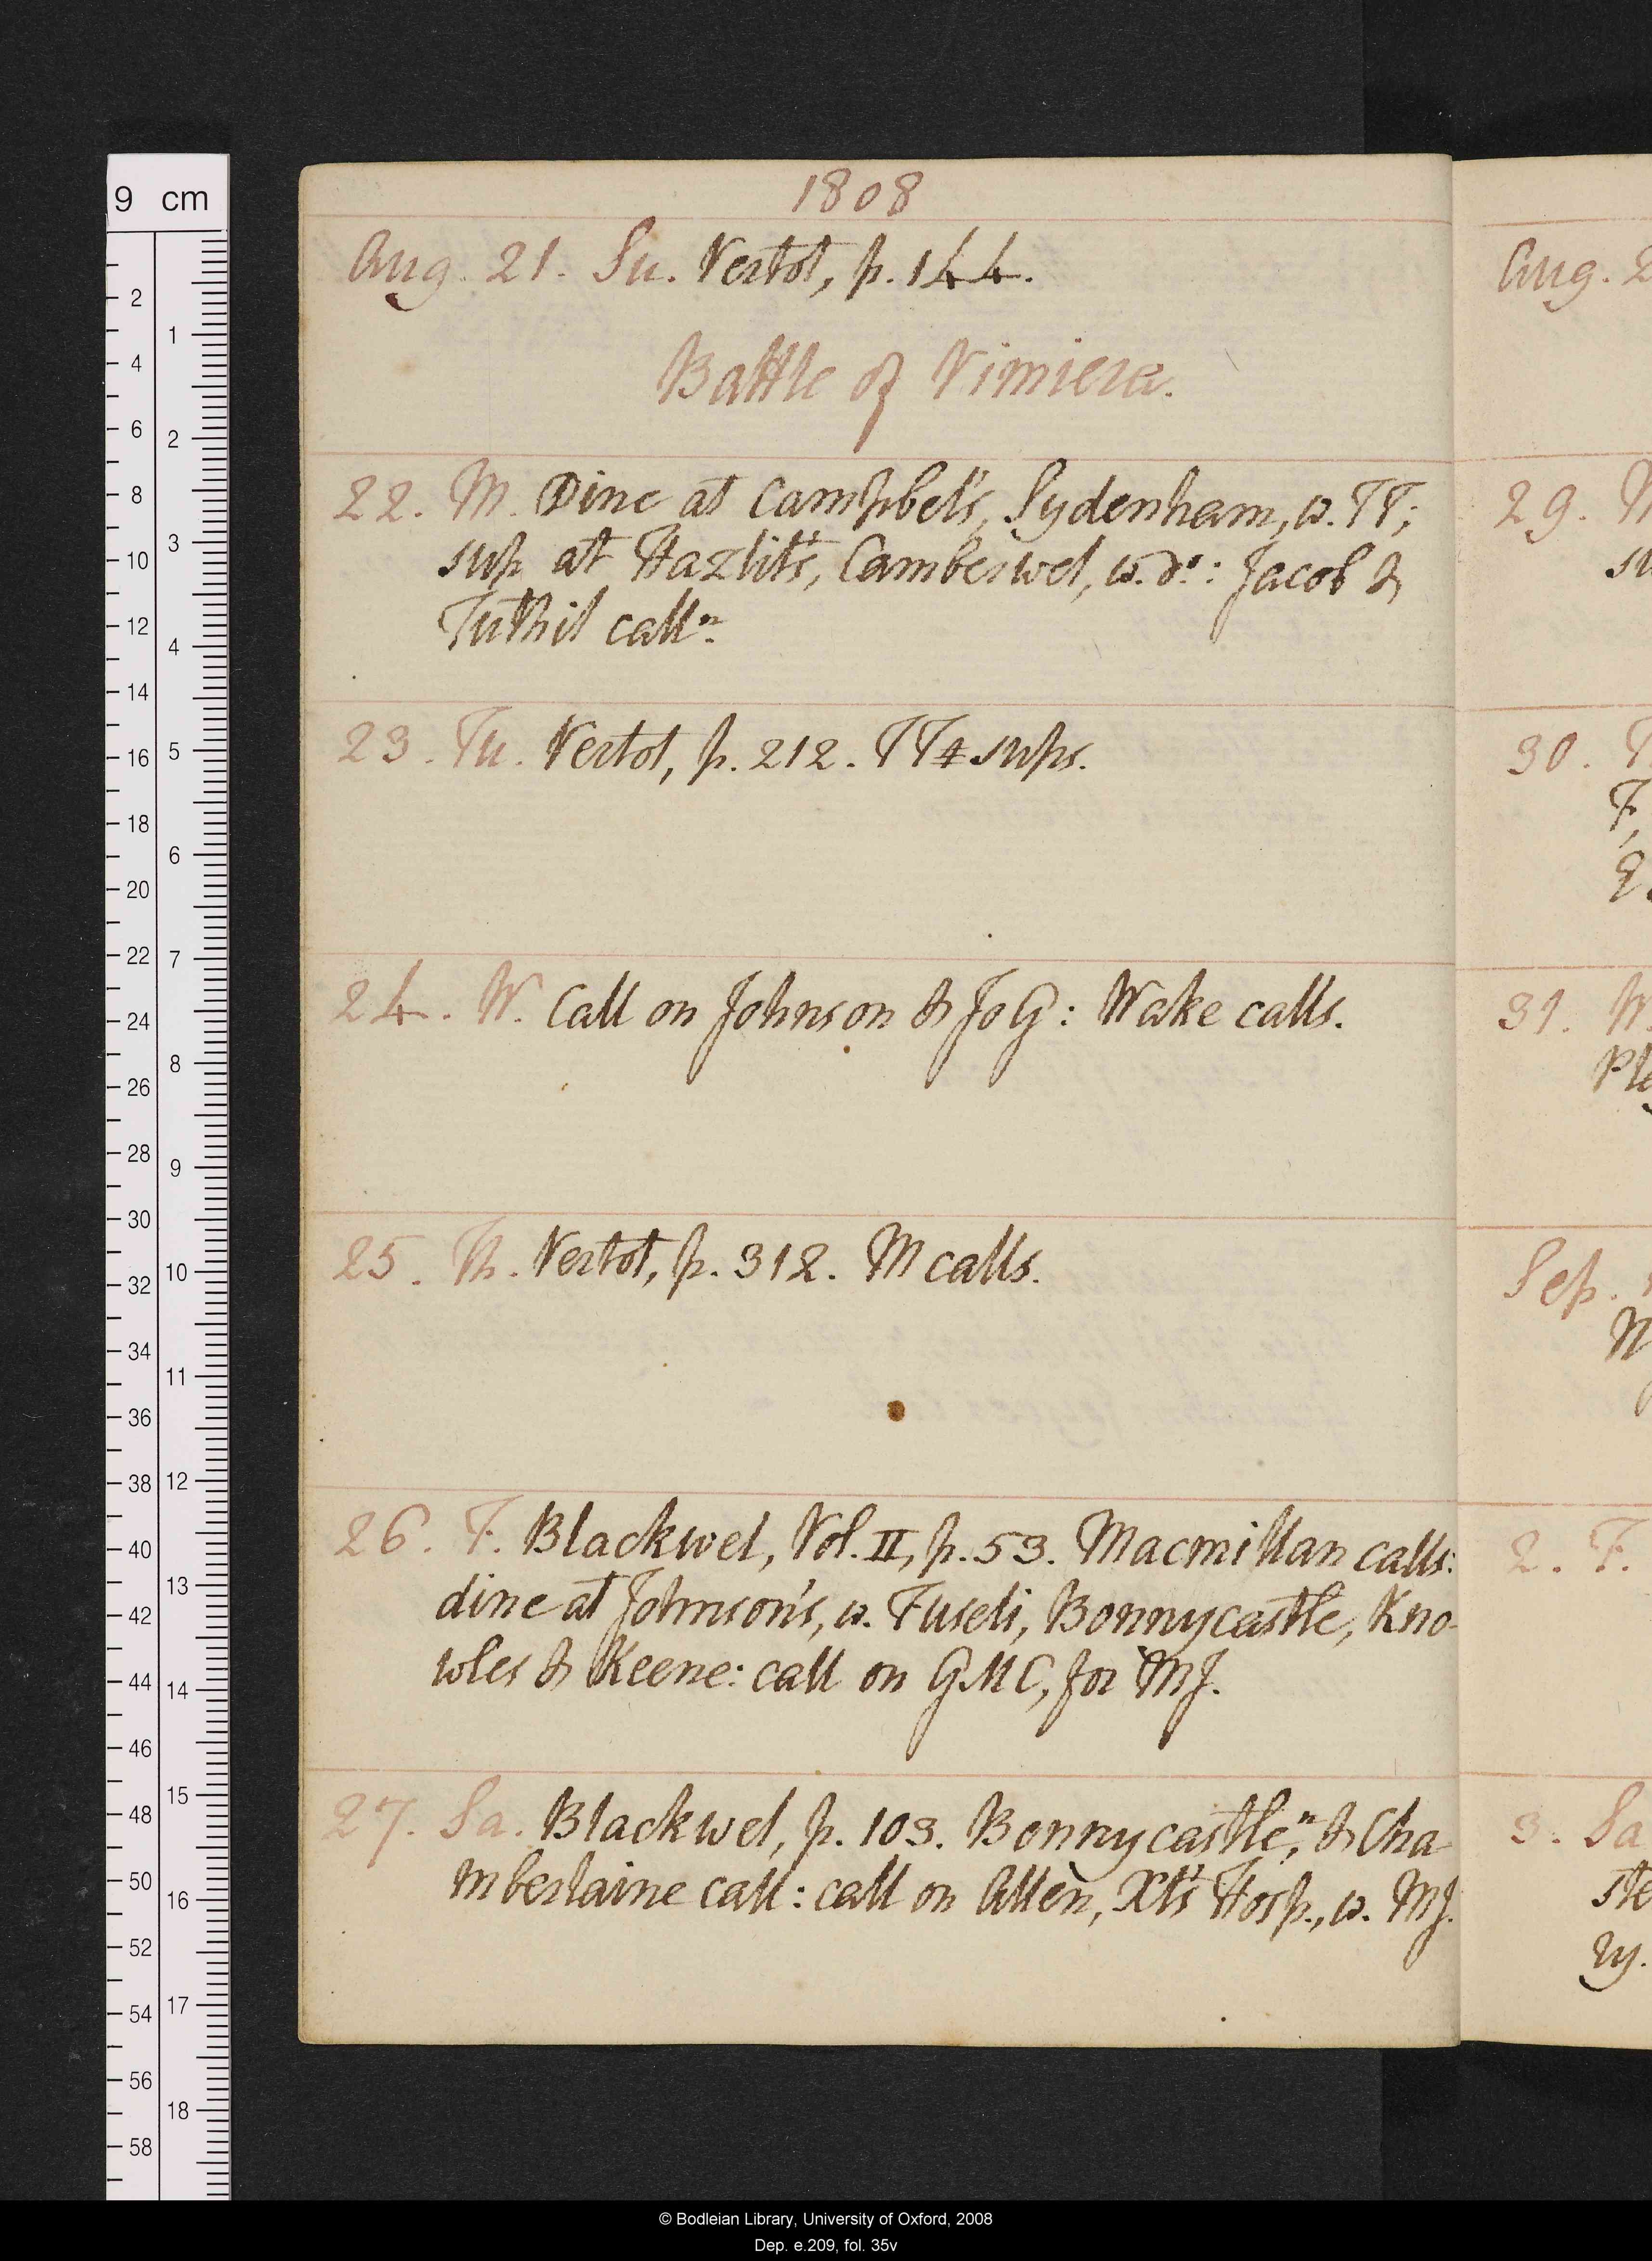 1808
Aug. 21. Su. Vertot, p. 144.
Battle of Vimiera.
22. M. Dine at Campbel's, Sydenham, w. TT;
sup at Hazlit's, Camberwel, w. do: Jacob &
Tuthil calln.
23. Tu. Vertot, p. 212. TT sups.
24. W. Call on Johnson & JoG: Wake calls.
25. Th. Vertot, p. 312. M calls.
26. F. Blackwel, Vol. II, p. 53. Macmillan calls:
dine at Johnson's, w. Fuseli, Bonnycastle, Kno-
wles & Keene: call on GMC, for MJ.
27. Sa. Blackwel, p. 103. Bonnycastle, n & Cha-
mberlaine call: call on Allen, Xt's Hosp., w. MJ.
Aug. 2
29.
30.
F,
31. W.
Sep.
2. F.
3. Sa
ry.
9 cm
2
4
6
8
10
12
14
16
18
20
22
24
26
28
30
32
34
36
38
40
42
44
46
48
50
52
54
56
58
1
2
3
4
5
6
7
8
9
10
11
12
13
14
15
16
17
18
© Bodleian Library, University of Oxford, 2008
Dep. e.209, fol. 35v